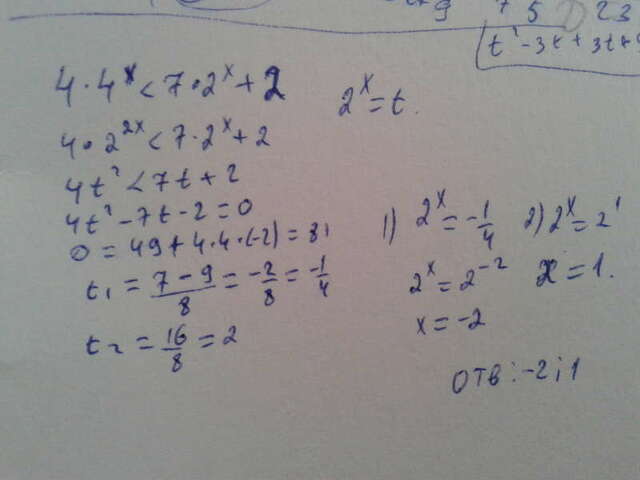 9 7 5 23
t² - 3t + 3t +
4 · 4ˣ < 7 · 2ˣ + 2
2ˣ = t.
4 · 2²ˣ < 7 · 2ˣ + 2
4t² < 7t + 2
4t² - 7t - 2 = 0
D = 49 + 4 · 4 · (-2) = 81
t₁ = (7 - 9)/8 = -2/8 = -1/4
t₂ = 16/8 = 2
1) 2ˣ = -1/4
2ˣ = 2⁻²
x = -2
2) 2ˣ = 2¹
x = 1.
ОТВ: -2; 1